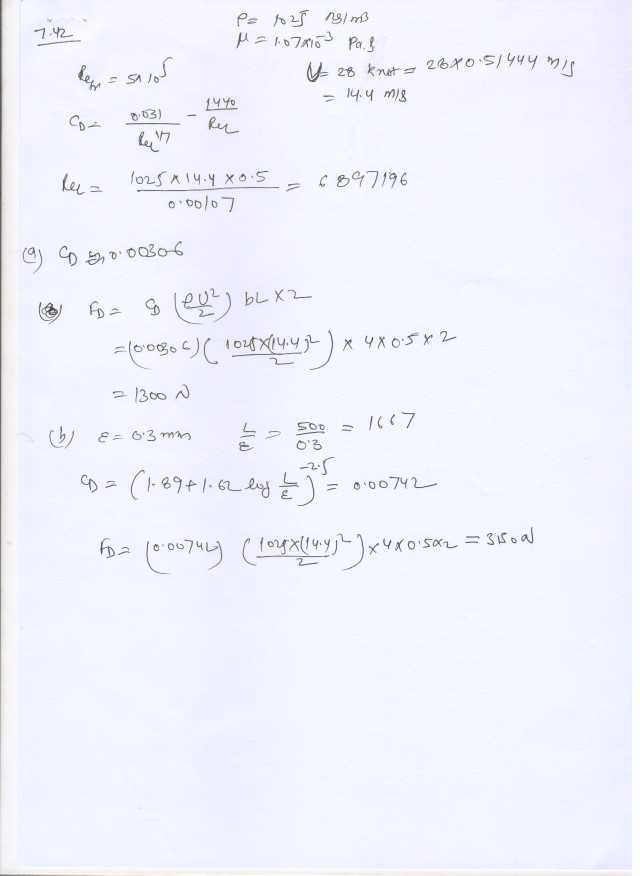 7.42
ρ = 1025 kg/m3
μ = 1.07x10^-3 Pa.s
Re_tr = 5x10^5
U = 28 knot = 28x0.51444 m/s
= 14.4 m/s
C_D = 0.031/Re_L^1/7 - 1440/Re_L
Re_L = 1025 x 14.4 x 0.5 / 0.00107 = 6897196
(a) C_D ≈ 0.00306
F_D = C_D (ρU^2/2) bL x 2
= (0.00306) (1025x(14.4)^2/2) x 4x0.5x2
= 1300 N
(b) ε = 0.3 mm L/ε = 500/0.3 = 1667
C_D = (1.89 + 1.62 log L/ε)^-2.5 = 0.00742
F_D = (0.00742) (1025x(14.4)^2/2) x 4x0.5x2 = 3150N